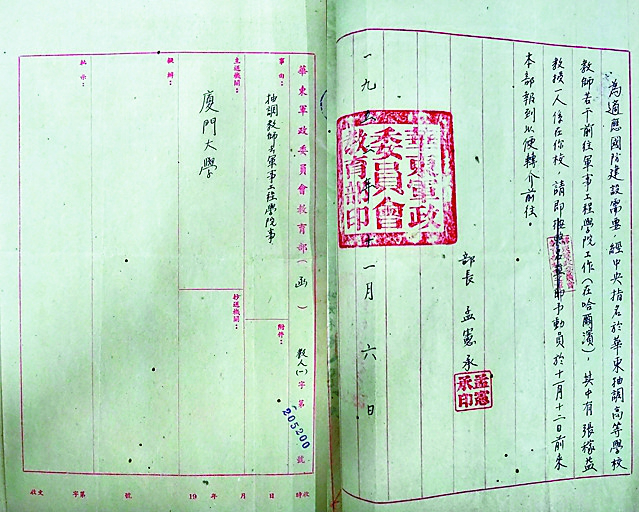 為適應國防建設需要，經中央指名於華東抽調高等學校
教師若干前往軍事工程學院工作（在哈爾濱），其中有張稼益
教授一人係在你校，請即 予動員於十一月十二日前來
本部報到以便轉介前往。
部長 孟憲承
孟憲承印
一九 年十一月六日
華東軍政
委員會
教育部印
華東軍政委員會教育部（函） 教人(一)字第205200號
事由：抽調教師去軍事工程學院事
附件：
主送機關：廈門大學
抄送機關：
擬辦：
批示：
收文 字第 號 19 年 月 日 時收